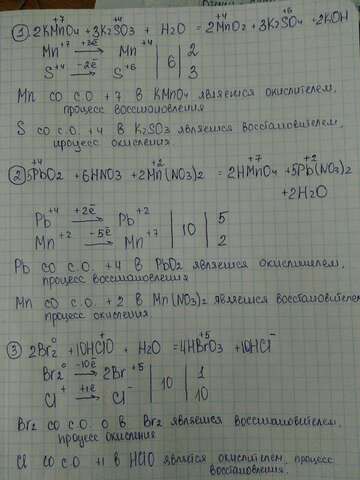 +7 +4 +4 +6
① 2KMnO₄ + 3K₂SO₃ + H₂O = 2MnO₂ + 3K₂SO₄ + 2KOH
Mn⁺⁷ +3ē→ Mn⁺⁴ | 6 | 2
S⁺⁴ −2ē→ S⁺⁶ | 3
Mn со с.о. +7 в KMnO₄ является окислителем,
процесс восстановления
S со с.о. +4 в K₂SO₃ является восстановителем,
процесс окисления
+4 +2 +7 +2
② 5PbO₂ + 6HNO₃ + 2Mn(NO₃)₂ = 2HMnO₄ + 5Pb(NO₃)₂
+ 2H₂O
Pb⁺⁴ +2ē→ Pb⁺² | 10 | 5
Mn⁺² −5ē→ Mn⁺⁷ | 2
Pb со с.о. +4 в PbO₂ является окислителем,
процесс восстановления
Mn со с.о. +2 в Mn(NO₃)₂ является восстановителем
процесс окисления
0 + +5 −
③ 2Br₂ + 10HClO + H₂O = 4HBrO₃ + 10HCl
Br₂⁰ −10ē→ 2Br⁺⁵ | 10 | 1
Cl⁺ +1ē→ Cl⁻ | 10
Br₂ со с.о. 0 в Br₂ является восстановителем,
процесс окисления
Cl со с.о. +1 в HClO является окислителем, процесс
восстановления.